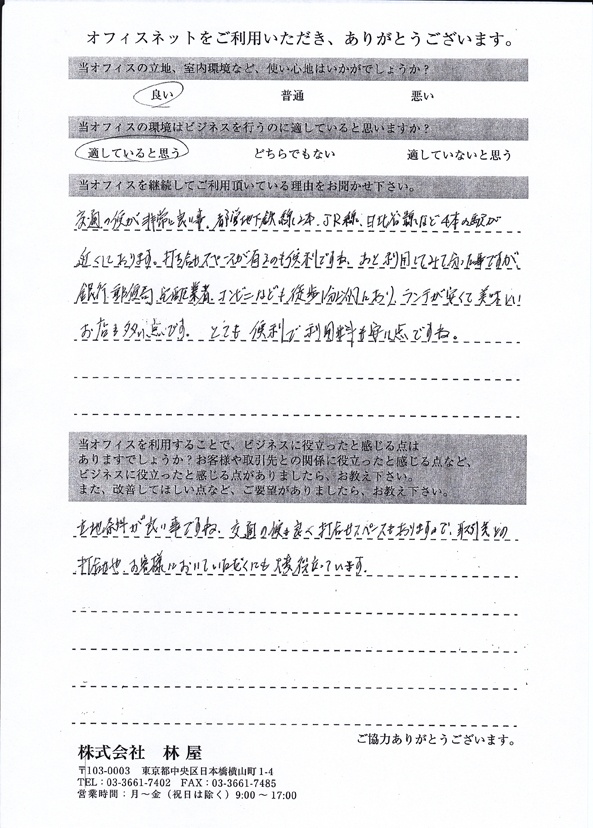 オフィスネットをご利用いただき、ありがとうございます。
当オフィスの立地、室内環境など、使い心地はいかがでしょうか？
良い 普通 悪い
当オフィスの環境はビジネスを行うのに適していると思いますか？
適していると思う どちらでもない 適していないと思う
当オフィスを継続してご利用頂いている理由をお聞かせ下さい。
交通の便が非常に良い事。都営地下鉄線2本、JR線、日比谷線など4本の駅が
近くしております。打ち合わせスペースが有るのも便利ですね。あと利用してみて分った事ですが
銀行 郵便局 宅配業者 コンビニなども徒歩1分以内にあり、ランチが安くて美味しい
お店も多い点です。とても便利で利用料も安い点ですね。
当オフィスを利用することで、ビジネスに役立ったと感じる点は
ありますでしょうか？お客様や取引先との関係に役立ったと感じる点など、
ビジネスに役立ったと感じる点がありましたら、お教え下さい。
また、改善してほしい点など、ご要望がありましたら、お教え下さい。
立地条件が良い事ですね、交通の便も良く打合せスペースもありますので、取引先との
打合せや、お客様においでいただくにも大変役立っています。
ご協力ありがとうございます。
株式会社 林屋
〒103-0003 東京都中央区日本橋横山町1-4
TEL：03-3661-7402 FAX：03-3661-7485
営業時間：月～金（祝日は除く）9:00～17:00